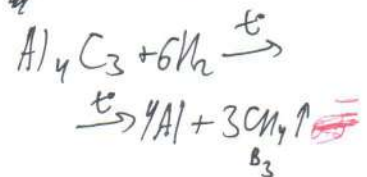 Al₄C₃ + 6H₂ →t°
→t° 4Al + 3CH₄↑
B₃